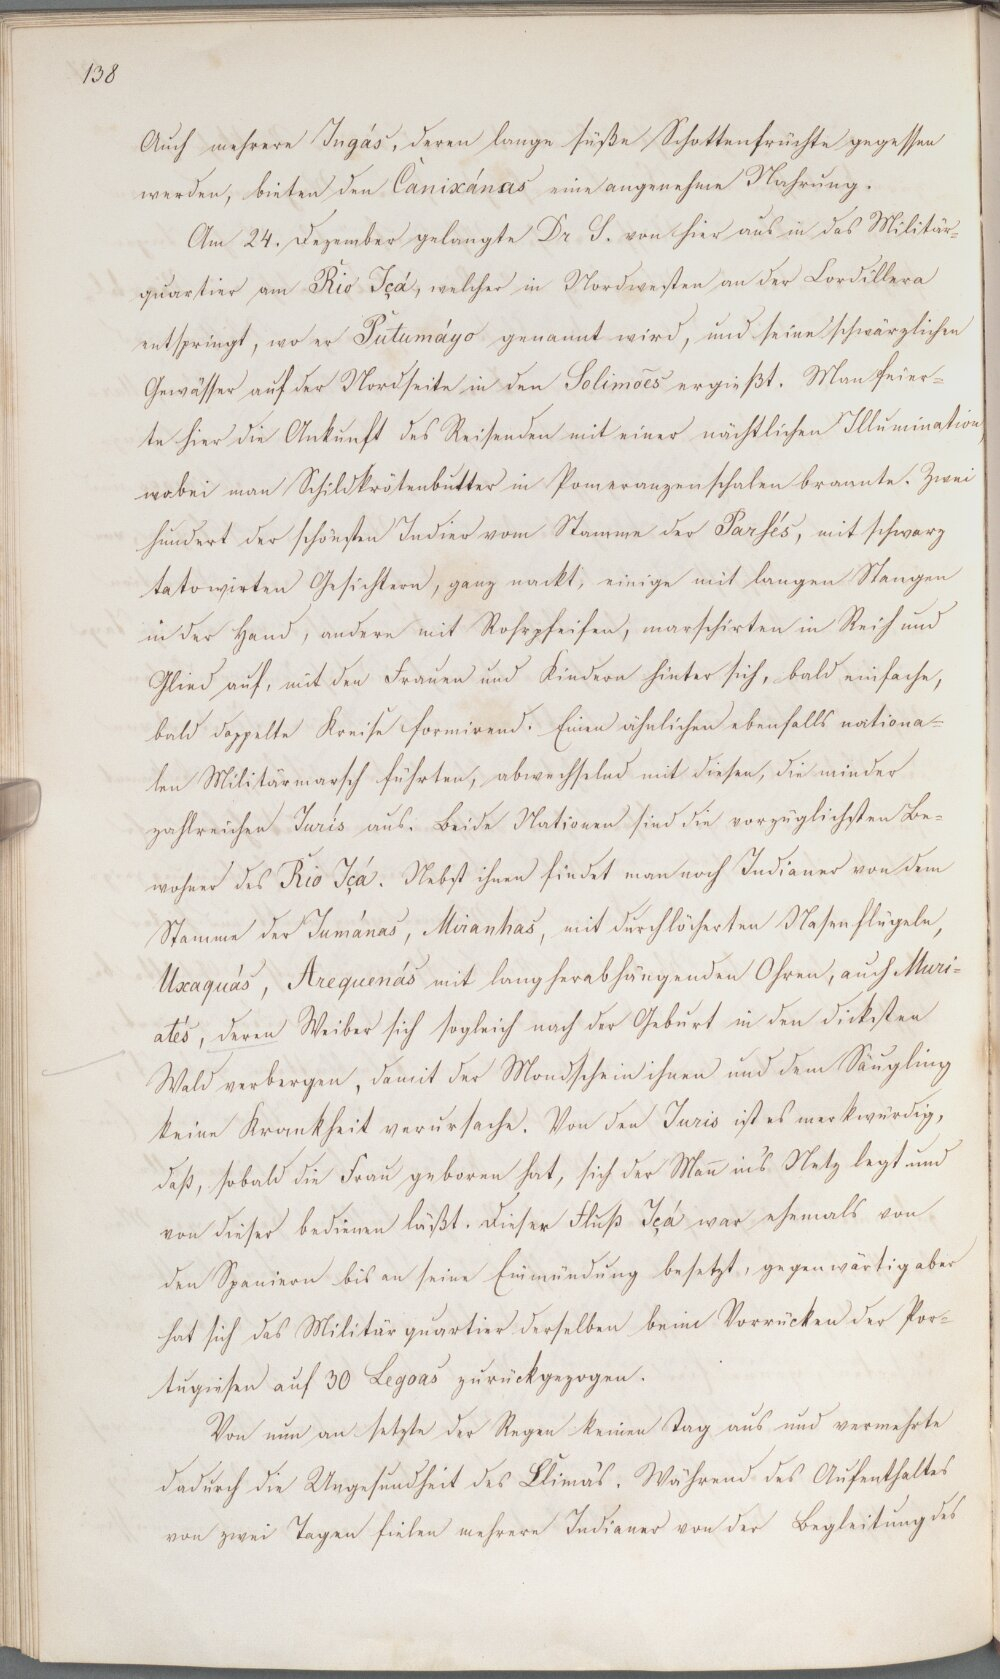 138
Auch mehrere Ingás, deren lange süße Schottenfrüchte gegessen
werden, bieten den Canixánas eine angenehme Nahrung.
Am 24. Dezember gelangte Dr S. von hier aus in das Militär-
quartier am Rio Içá, welcher in Nordwesten an der Cordillera
entspringt, wo er Putumáyo genannt wird, und seine schwärzlichen
Gewässer auf der Nordseite in den Solimoẽs ergießt. Man feier-
te hier die Ankunft des Reisenden mit einer nächtlichen Illumination,
wobei man Schildkrötenbutter in Pomeranzenschalen brannte. Zwei
hundert der schönsten Indier vom Stamme der Parsés, mit schwarz
tatowirten Gesichtern, ganz nackt, einige mit langen Stangen
in der Hand, andere mit Rohrpfeifen, marschirten in Reih und
Glied auf, mit den Frauen und Kindern hinter sich, bald einfache,
bald doppelte Kreise formirend. Einen ähnlichen ebenfalls nationa-
len Militärmarsch führten, abwechselnd mit diesen, die minder
zahlreichen Jurís aus. Beide Nationen sind die vorzüglichsten Be-
wohner des Rio Içá. Nebst ihnen findet man noch Indianer von dem
Stamme der Jumánas, Miranhas, mit durchlöcherten Nasenflügeln,
Uxaquás, Arequenás mit langherabhängenden Ohren, auch Muri-
atés, deren Weiber sich sogleich nach der Geburt in den dicksten
Wald verbergen, damit der Mondschein ihnen und dem Säugling
keine Krankheit verursache. Von den Juris ist es merkwürdig,
daß, sobald die Frau geboren hat, sich der Mañ in's Netz legt und
von dieser bedienen läßt. Dieser Fluß Içá war ehemals von
den Spaniern bis an seine Einmündung besetzt, gegenwärtig aber
hat sich das Militärquartier derselben beim Vorrücken der Por-
tugiesen auf 30 Legoas zurückgezogen.
Von nun an setzte der Regen keinen Tag aus und vermehrte
dadurch die Ungesundheit des Clima's. Während des Aufenthaltes
von zwei Tagen fielen mehrere Indianer von der Begleitung des